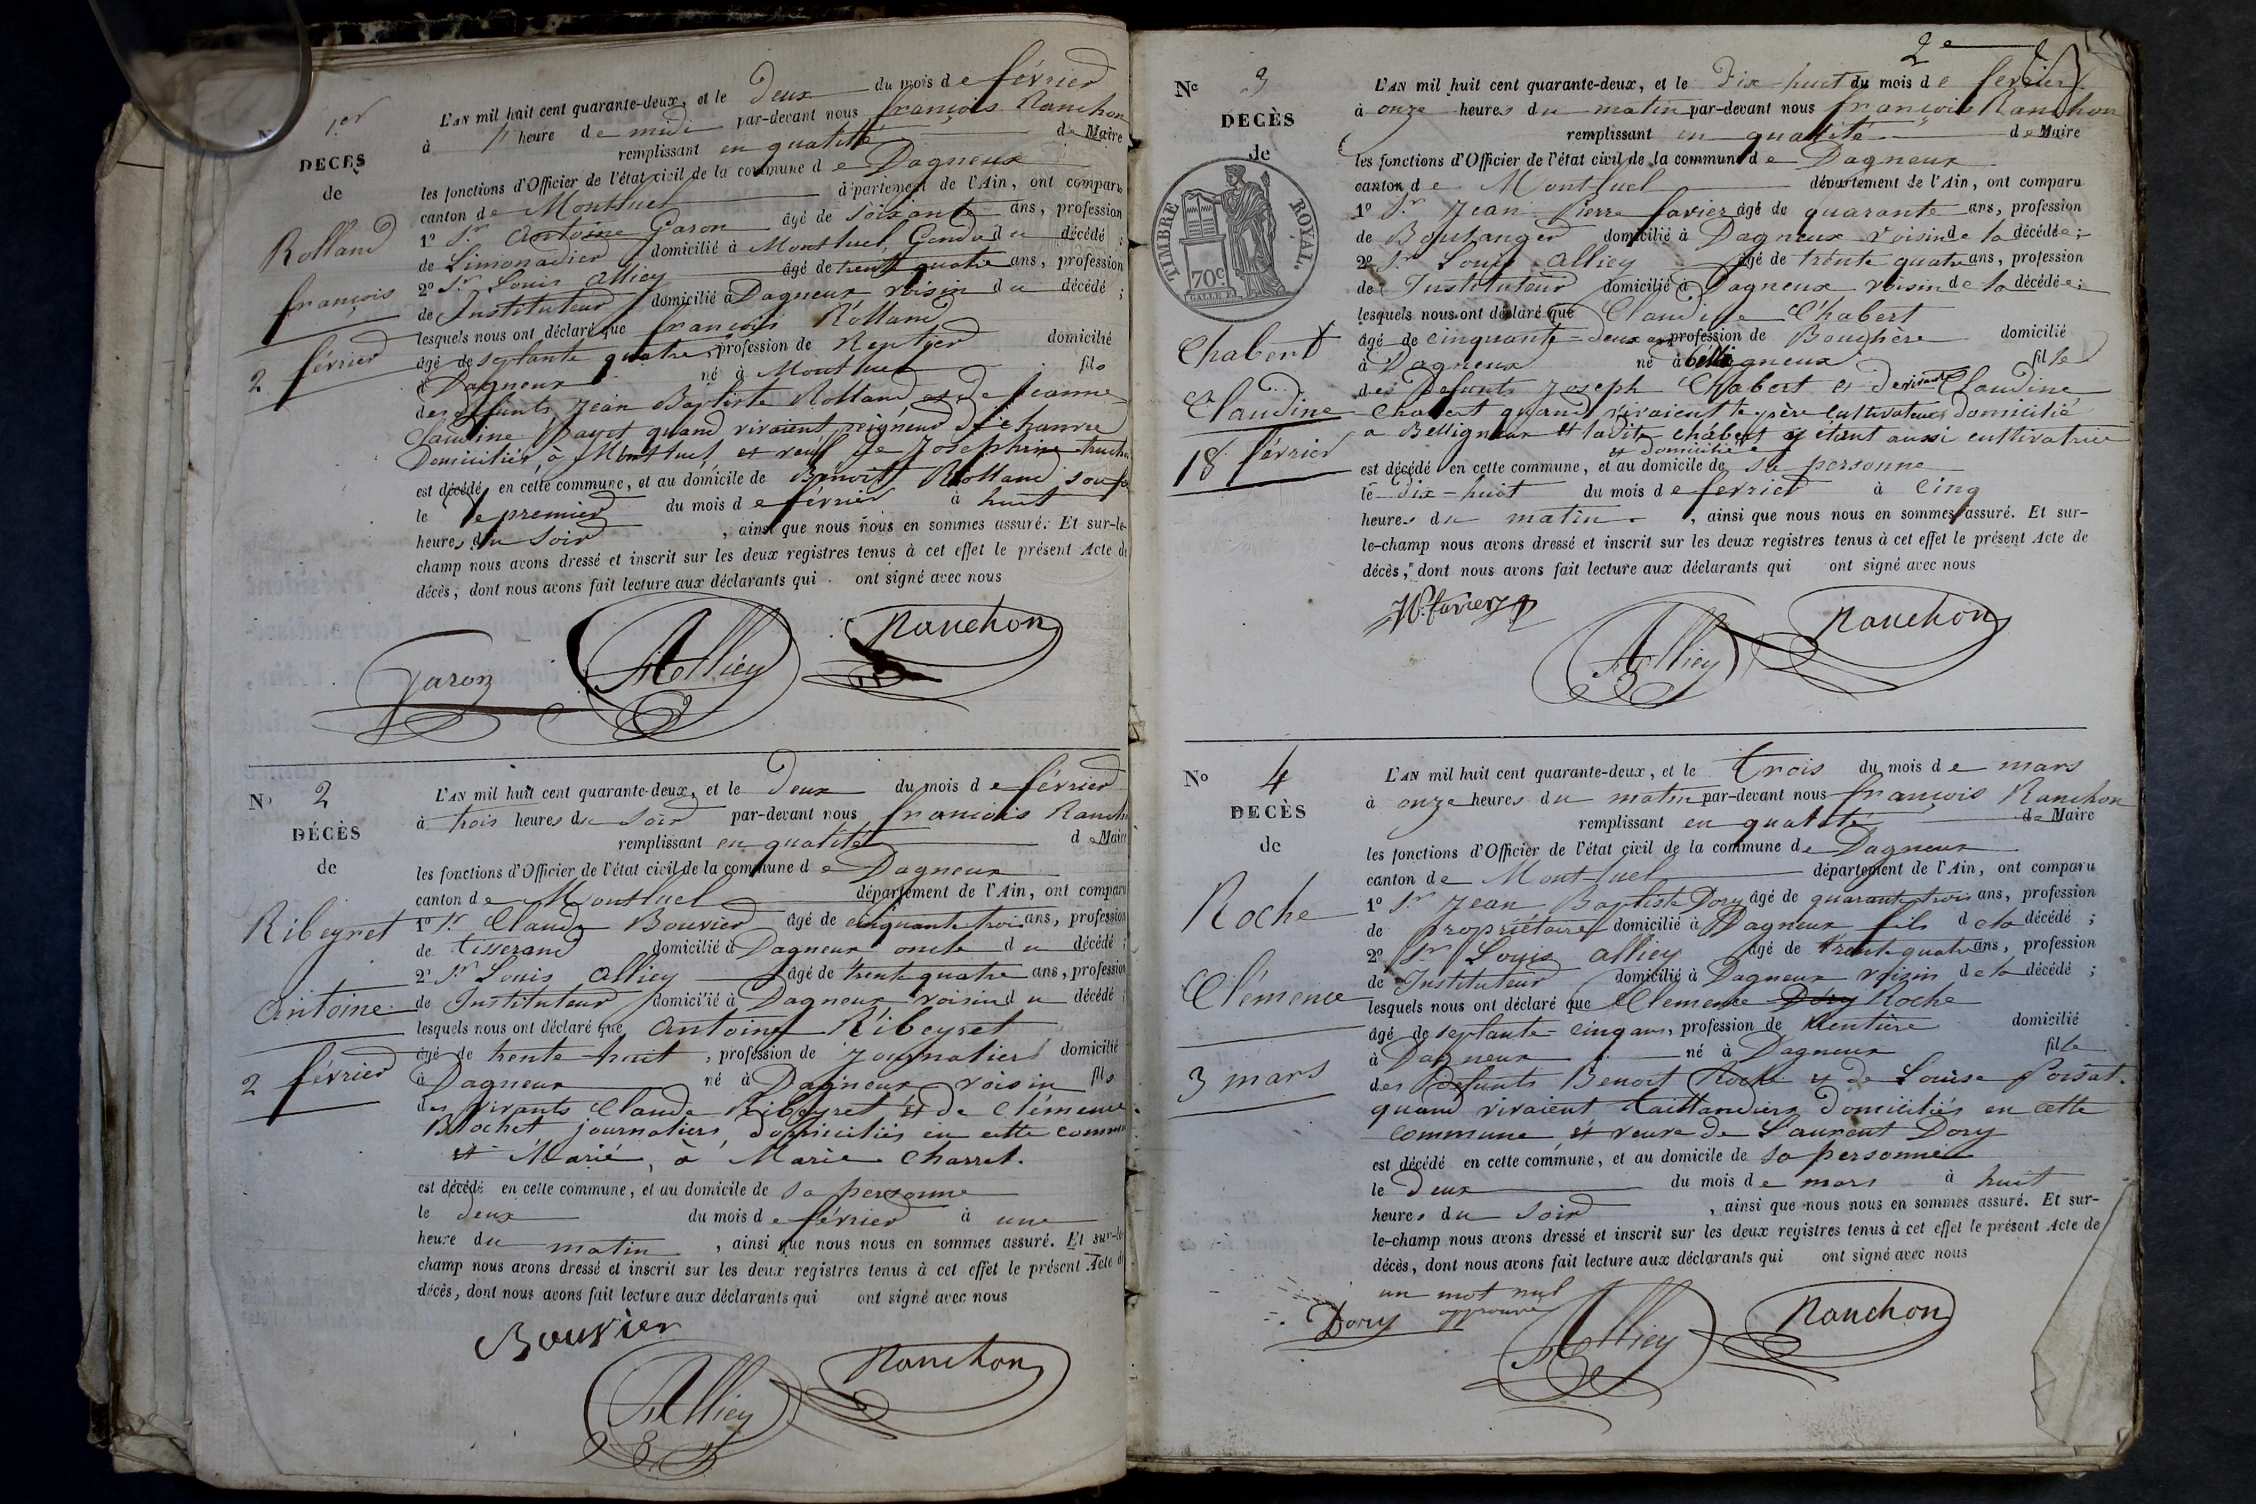 N° 1.er
DECES
de
Rolland
françois
2 février
L'AN mil huit cent quarante-deux, et le Deux du mois de février
à 1 heure de midi par-devant nous françois Ranchon
remplissant en qualité de Maire
les fonctions d'Officier de l'état civil de la commune de Dagneux
canton de Montluel département de l'Ain, ont comparu
1° Sr. Antoine Garon âgé de soixante ans, profession
de Limonadier domicilié à Montluel, Gendre du décédé ;
2° Sr. Louis Alliey âgé de trente quatre ans, profession
de Instituteur domicilié à Dagneux voisin du décédé ;
lesquels nous ont déclaré que françois Rolland
âgé de septante quatre, profession de Rentier domicilié
à Dagneux né à Montluel fils
des deffunts Jean Baptiste Rolland et de Jeanne
Claudine quand vivaient peigneur de chanvre
Domiciliés, à Montluel et veuf de Josephine
est décédé en cette commune, et au domicile de Benoit Rolland son fs
le le premier du mois de février à huit
heures du soir , ainsi que nous nous en sommes assuré. Et sur-le-
champ nous avons dressé et inscrit sur les deux registres tenus à cet effet le présent Acte de
décès, dont nous avons fait lecture aux déclarants qui ont signé avec nous
Garon Alliey Ranchon
N° 2
DÉCÈS
de
Ribeyret
Antoine
2 février
L'AN mil huit cent quarante-deux, et le Deux du mois de février
à trois heures du soir par-devant nous françois Ranch
remplissant en qualité de Maire
les fonctions d'Officier de l'état civil de la commune de Dagneux
canton de Montluel département de l'Ain, ont comparu
1° Sr. Claude Bouvier âgé de cinquante trois ans, profession
de tisserand domicilié à Dagneux oncle du décédé ;
2° Sr. Louis Alliey âgé de trente quatre ans, profession
de Instituteur domicilié à Dagneux voisin du décédé ;
lesquels nous ont déclaré que Antoine Ribeyret
âgé de trente huit , profession de Journalier domicilié
à Dagneux né à Dagneux voisin fils
des vivants Claude Ribeyret et de Clémence
Blochet journaliers, domiciliés en cette commune
et Marié, à Marie Charret.
est décédé en cette commune, et au domicile de sa personne
le deux du mois de février à une
heure du matin , ainsi que nous nous en sommes assuré. Et sur-le-
champ nous avons dressé et inscrit sur les deux registres tenus à cet effet le présent Acte de
décès, dont nous avons fait lecture aux déclarants qui ont signé avec nous
Bouvier
Alliey Ranchon
2e
N° 3
DECÈS
de
TIMBRE ROYAL.
70c
Chabert
Claudine
18 février
L'AN mil huit cent quarante-deux, et le Dix-huit du mois de fevrier
à onze heures du matin par-devant nous françois Ranchon
remplissant en qualité de Maire
les fonctions d'Officier de l'état civil de la commune de Dagneux
canton de Montluel département de l'Ain, ont comparu
1° Sr. Jean Pierre favier âgé de quarante ans, profession
de Boulanger domicilié à Dagneux voisin de la décédée ;
2° Sr. Louis Alliey âgé de trente quatre ans, profession
de Instituteur domicilié à Dagneux voisin de la décédée ;
lesquels nous ont déclaré que Claudine Chabert
âgé de cinquante-deux ans profession de Bouchère domicilié
à Dagneux né à belligneux fille
des Defunts Joseph Chabert et de vivante Claudine
Chabert quand vivaient le père Cultivateurs domicilié
a Belligneux et ladite chabert y étant aussi cultivatrice
et domiciliée
est décédé en cette commune, et au domicile de sa personne
le dix-huit du mois de fevrier à cinq
heures du matin , ainsi que nous nous en sommes assuré. Et sur-
le-champ nous avons dressé et inscrit sur les deux registres tenus à cet effet le présent Acte de
décès, dont nous avons fait lecture aux déclarants qui ont signé avec nous
favier Alliey Ranchon
N° 4
DECÈS
de
Roche
Clémence
3 mars
L'AN mil huit cent quarante-deux, et le trois du mois de mars
à onze heures du matin par-devant nous françois Ranchon
remplissant en qualité de Maire
les fonctions d'Officier de l'état civil de la commune de Dagneux
canton de Montluel département de l'Ain, ont comparu
1° Sr. Jean Baptiste Dory âgé de quarante trois ans, profession
de propriétaire domicilié à Dagneux fils de la décédé ;
2° Sr. Louis Alliey âgé de trente quatre ans, profession
de Instituteur domicilié à Dagneux voisin de la décédé ;
lesquels nous ont déclaré que Clemence Dory Roche
âgé de septante-cinq ans, profession de Rentière domicilié
à Dagneux né à Dagneux fille
des Defunts Benoit Roche et de Louise Poisat
quand vivaient taillandiers domiciliés en cette
commune et veuve de Laurent Dory
est décédé en cette commune, et au domicile de sa personne
le Deux du mois de mars à huit
heures du soir , ainsi que nous nous en sommes assuré. Et sur-
le-champ nous avons dressé et inscrit sur les deux registres tenus à cet effet le présent Acte de
décès, dont nous avons fait lecture aux déclarants qui ont signé avec nous
un mot nul
approuvé
Dory Alliey Ranchon